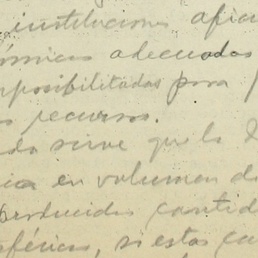 instituciones oficia
ómicas adecuadas
mposibilitadas para p
s recursos.
da sirve que la D
ica en volumen d
producidas cantid
sféricas, si estas ca